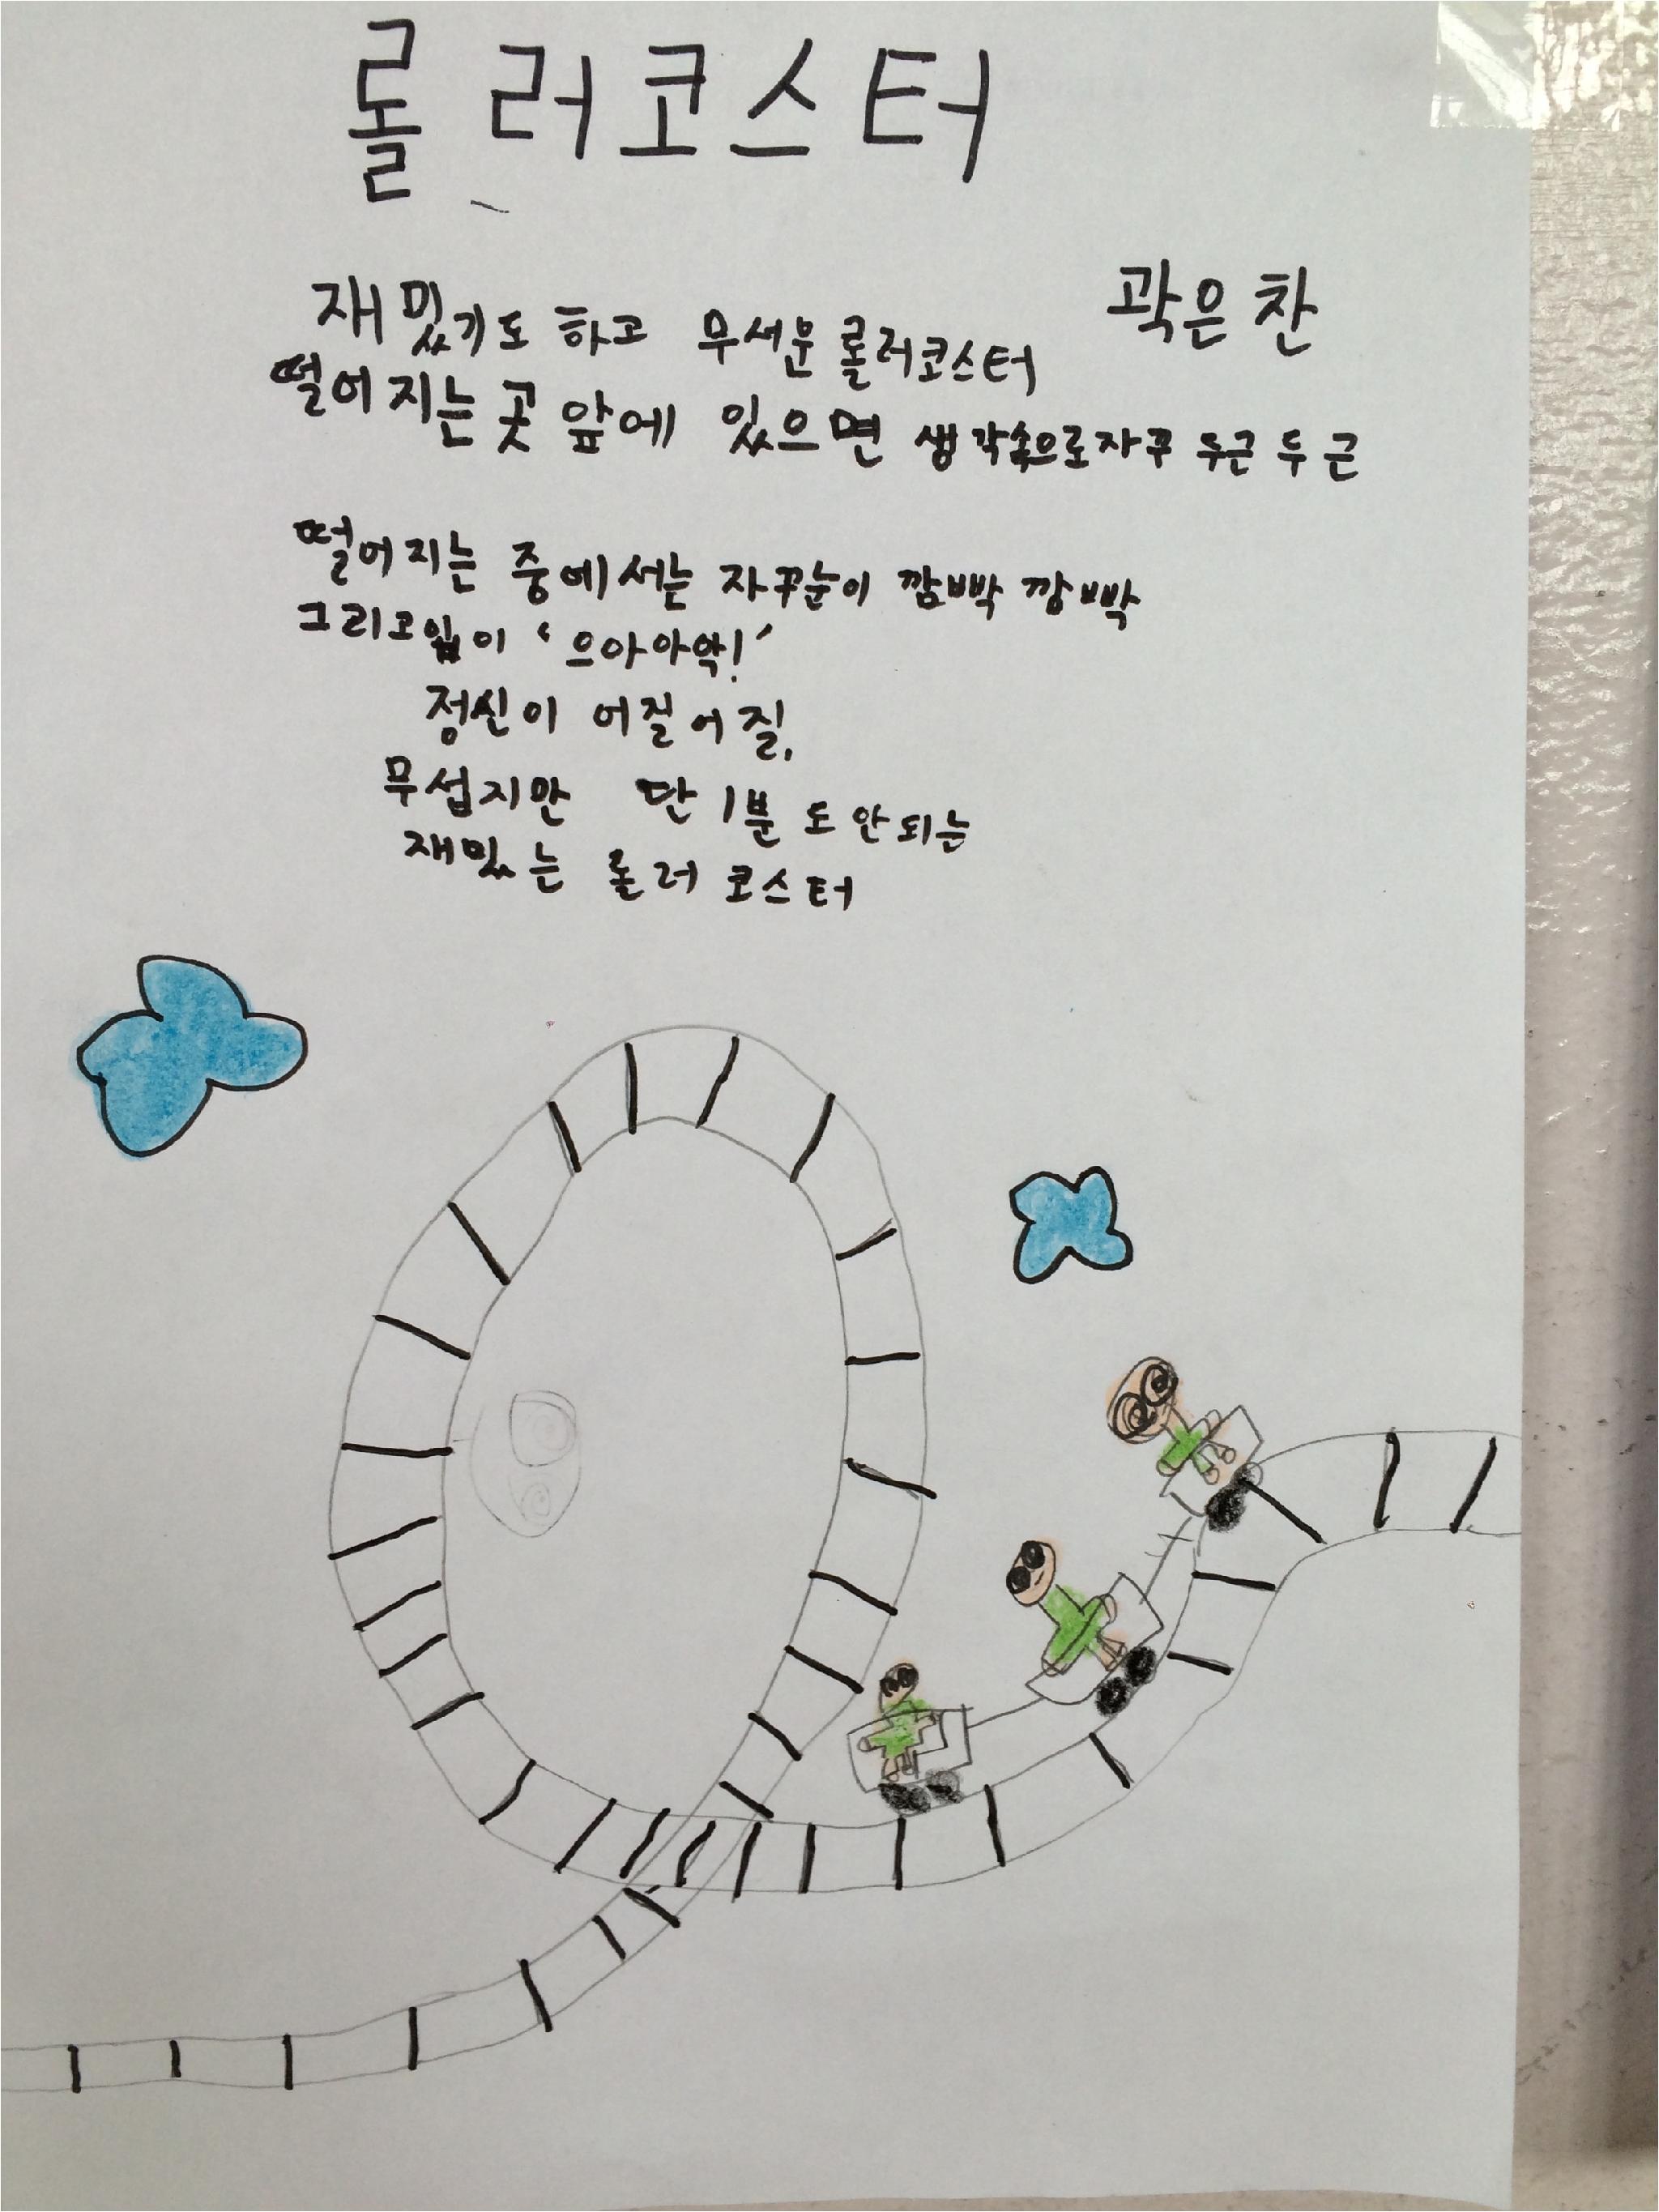 롤러코스터
곽은찬
재밌기도 하고 무서운 롤러코스터
떨어지는 곳 앞에 있으면 생각속으로자꾸 두근두근
떨어지는 중에서는 자꾸눈이 깜빡 깜빡
그리고입이 ‘으아아악!’
정신이 어질어질,
무섭지만 단 1분도안되는
재밌는 롤러코스터